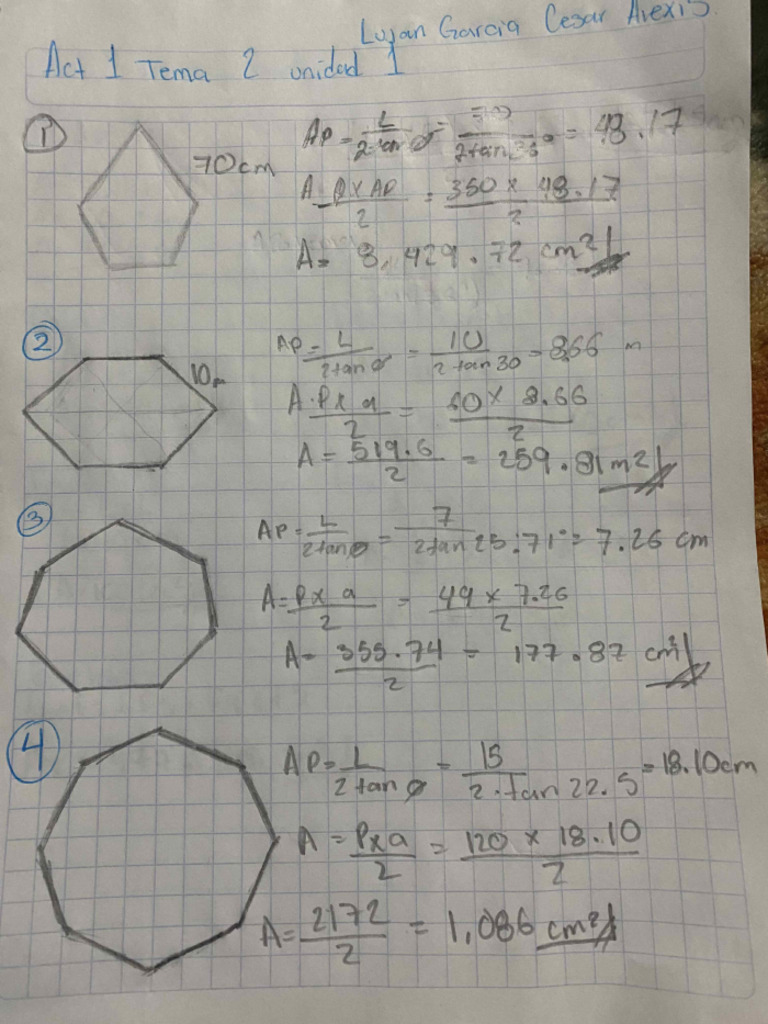 Lujan Garcia Cesar Alexis
Act 1 Tema 2 unidad 1
1
70cm
AP = L/2 tan ø = 70/2 tan 36° = 48.17
A = P x AP/2 = 350 x 48.17/2
A = 8,429.72 cm²
2
10m
AP = L/2 tan ø = 10/2 tan 30 = 8.66 m
A = P x a/2 = 60 x 8.66/2
A = 519.6/2 = 259.81 m2
3
AP = L/2 tan ø = 7/2 tan 25.71° = 7.26 cm
A = P x a/2 = 49 x 7.26/2
A = 355.74/2 = 177.87 cm²
4
AP = L/2 tan ø = 15/2 · tan 22.5 = 18.10 cm
A = P x a/2 = 120 x 18.10/2
A = 2172/2 = 1,086 cm²